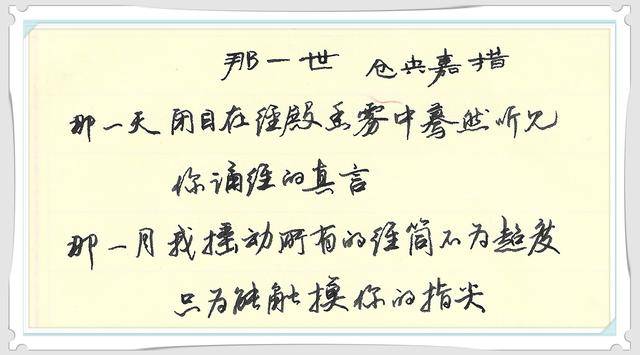 那一世 仓央嘉措
那一天闭目在经殿香雾中蓦然听见
你诵经的真言
那一月我摇动所有的经筒不为超度
只为能触摸你的指尖